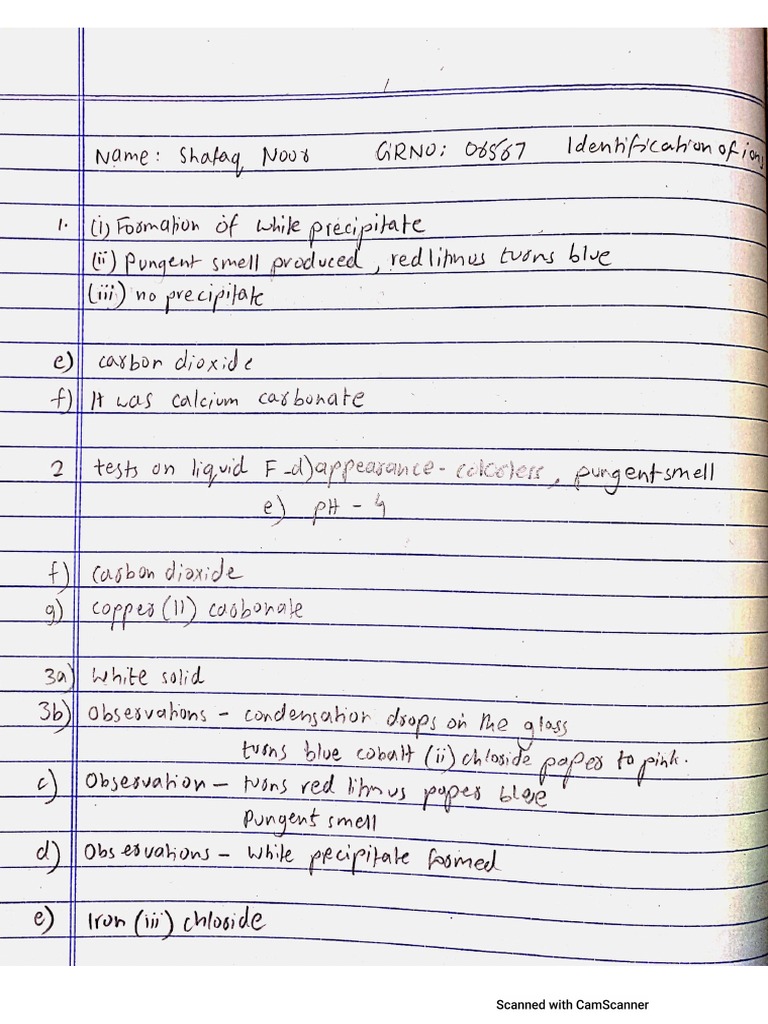 Name: Shafaq Noor GRNO: 06567 Identification of ions
1. (i) Formation of white precipitate
(ii) Pungent smell produced, red litmus turns blue
(iii) no precipitate
e) carbon dioxide
f) It was calcium carbonate
2 tests on liquid F - d) appearance - colorless, pungent smell
e) pH - 4
f) carbon dioxide
g) copper (II) carbonate
3a) White solid
3b) Observations - condensation drops on the glass
turns blue cobalt (ii) chloride paper to pink.
c) Observation - turns red litmus paper blue
Pungent smell
d) Observations - White precipitate formed
e) Iron (iii) chloride
Scanned with CamScanner